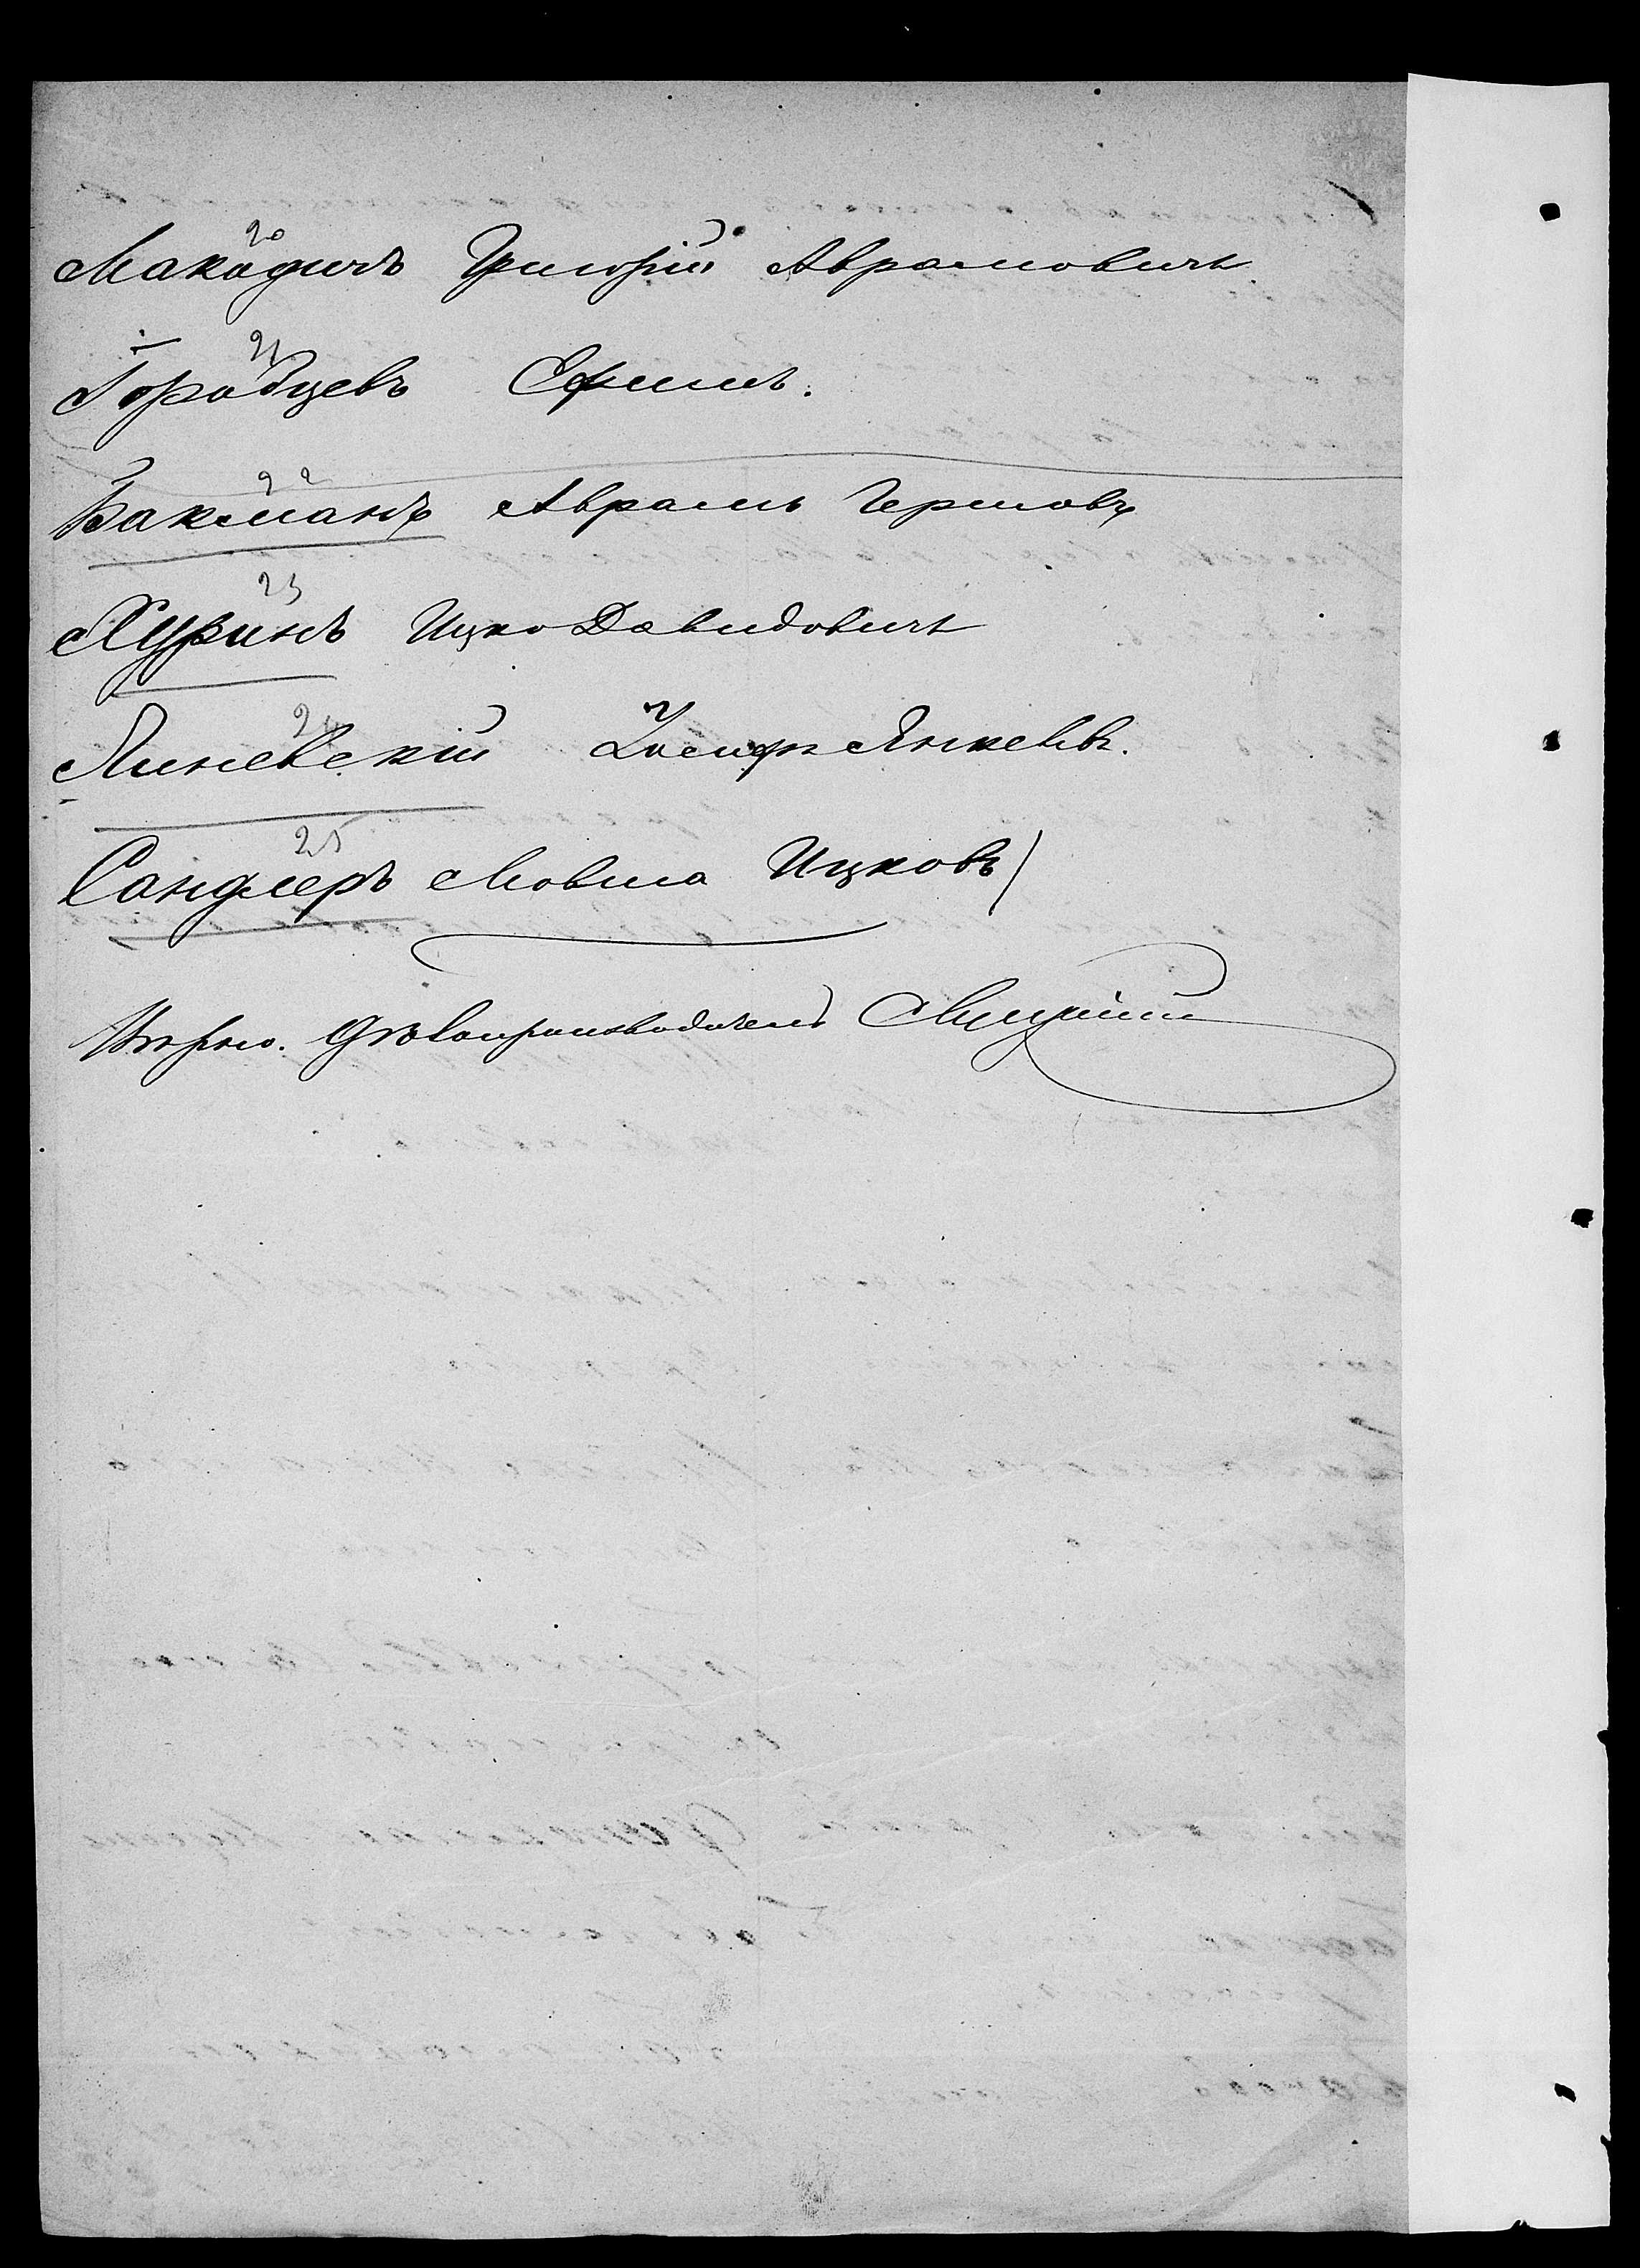 20
Макадичъ Григорій Аврамовичъ
21
Городцевъ Ефимъ.
22
Бакманъ Аврамъ Гершовъ
23
Хуринъ Ицко Давидовичъ
24
Линевскій Іосифъ Янкевъ.
25
Сандлеръ Мовша Ицковъ
Вѣрно. Дѣлопроизводитель